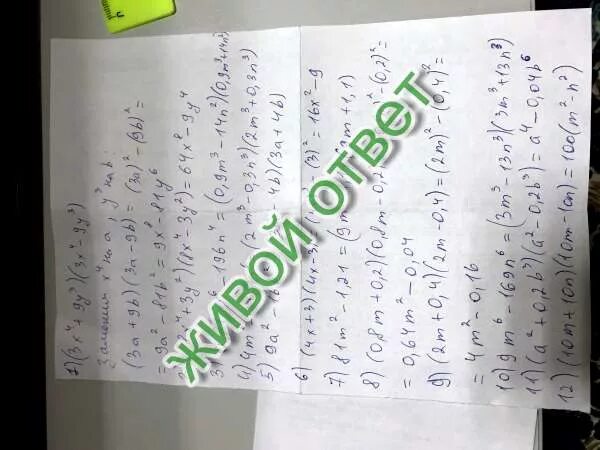 1) (3x⁴ + 9y³)(3x⁴ - 9y³)
Заменим x⁴ на a, y³ на b.
(3a + 9b)(3a - 9b) = (3a)² - (9b)² =
= 9a² - 81b² = 9x⁸ - 81y⁶
+ 3y²)(8x⁴ - 3y²) = 64x⁸ - 9y⁴
- 196n⁴ = (0,9m³ - 14n²)(0,9m³ + 14n²)
4) 4m (2m³ - 0,3n³)(2m³ + 0,3n³)
5) 9a² - 16 - 4b)(3a + 4b)
6) (4x + 3)(4x - 3 - (3)² = 16x² - 9
7) 81m² - 1,21 = (9m m + 1,1)
8) (0,8m + 0,2)(0,8m - 0,2 )² - (0,2)² =
= 0,64m² - 0,04
9) (2m + 0,4)(2m - 0,4) = (2m)² - (0,4)² =
= 4m² - 0,16
10) 9m⁶ - 169n⁶ = (3m³ - 13n³)(3m³ + 13n³)
11) (a² + 0,2b³)(a² - 0,2b³) = a⁴ - 0,04b⁶
12) (10m + 10n)(10m - 10n) = 100(m² - n²)
ЖИВОЙ ОТВЕТ